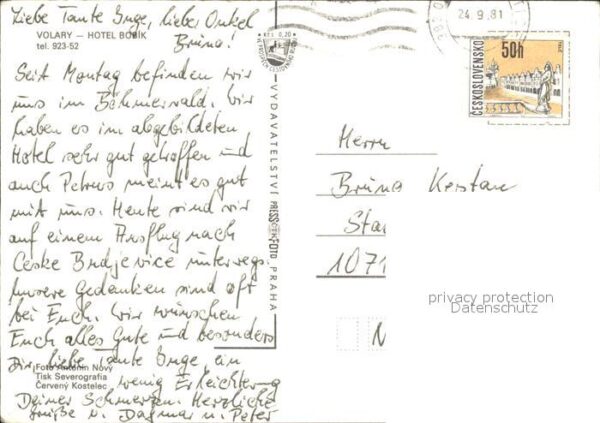 Liebe Tante Inge, lieber Onkel
Bruno!
VOLARY – HOTEL BOBÍK
tel. 923-52
Seit Montag befinden wir
uns im Böhmerwald. Wir
haben es im abgebildeten
Hotel sehr gut getroffen und
auch Petrus meint es gut
mit uns. Heute sind wir
auf einem Ausflug nach
Ceske Budjevice unterwegs.
Unsere Gedanken sind oft
bei Euch. Wir wünschen
Euch alles Gute und besonders
Dir, liebe Tante Inge ein
wenig Erleichterung
Deiner Schmerzen. Herzliche
Grüße v. Dagmar u. Peter
Foto Antonín Nový
Tisk Severografia
Červený Kostelec
Kčs 0,20
VYDAVATELSTVÍ PRESSFOTO PRAHA
24. 9. 81
ČESKOSLOVENSKO
50h
Herrn
Bruno Kerstan
Sta
1071
privacy protection
Datenschutz